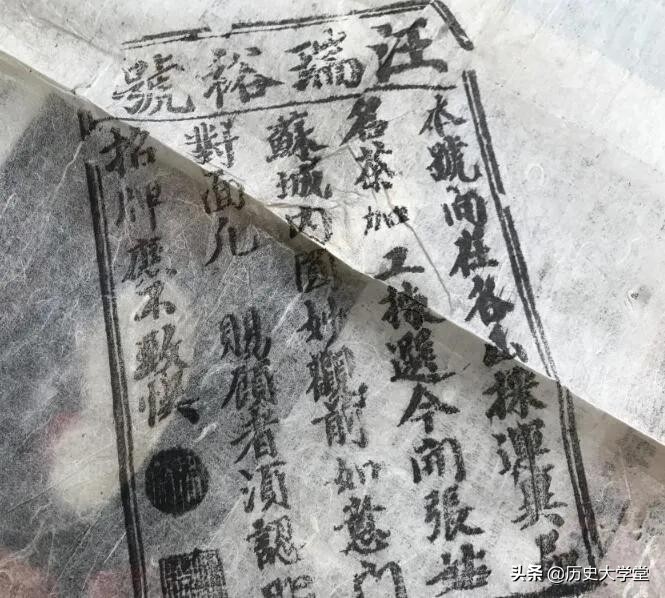 汪瑞裕號
本號向往各山採運真
名茶加工揀選今開張姑
蘇城內圓妙觀前如意門
對面凡 賜顧者須認明
招牌應不致悞
头条 @历史大学堂